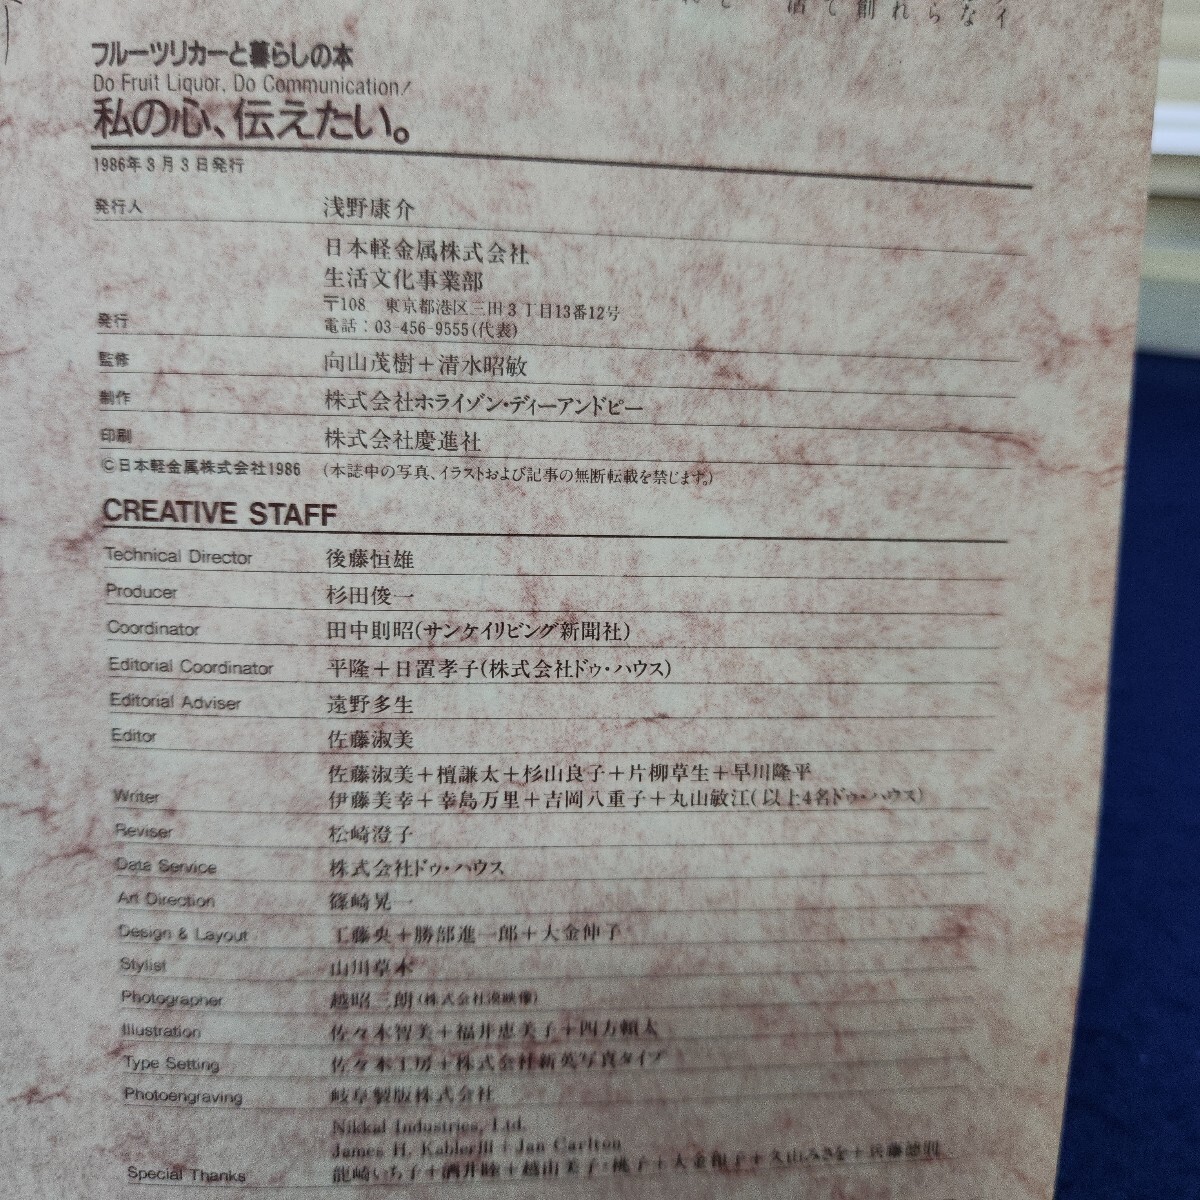 フルーツリカーと暮らしの本
Do Fruit Liquor, Do Communication!
私の心、伝えたい。
1986年3月3日発行
発行人 浅野康介
日本軽金属株式会社
生活文化事業部
〒108 東京都港区三田3丁目13番12号
発行 電話：03-456-9555(代表)
監修 向山茂樹＋清水昭敏
制作 株式会社ホライゾン・ディーアンドピー
印刷 株式会社慶進社
©日本軽金属株式会社1986 (本誌中の写真、イラストおよび記事の無断転載を禁じます。)
CREATIVE STAFF
Technical Director 後藤恒雄
Producer 杉田俊一
Coordinator 田中則昭(サンケイリビング新聞社)
Editorial Coordinator 平隆＋日置孝子(株式会社ドゥ・ハウス)
Editorial Adviser 遠野多生
Editor 佐藤淑美
佐藤淑美＋檀謙太＋杉山良子＋片柳草生＋早川隆平
Writer 伊藤美幸＋幸島万里＋吉岡八重子＋丸山敏江(以上4名ドゥ・ハウス)
Reviser 松崎澄子
Data Service 株式会社ドゥ・ハウス
Art Direction 篠崎晃一
Design & Layout 工藤央＋勝部進一郎＋大金伸子
Stylist 山川草木
Photographer 越昭三朗(株式会社 映像)
Illustration 佐々木智美＋福井恵美子＋四方頼太
Type Setting 佐々木工房＋株式会社新英写真タイプ
Photoengraving 岐阜製版株式会社
Nikkal Industries, Ltd.
James H. Kahler III + Jan Carlton
Special Thanks 龍崎いち子＋酒井睦＋越山美子・桃子＋大金和子＋久山みさを＋兵藤